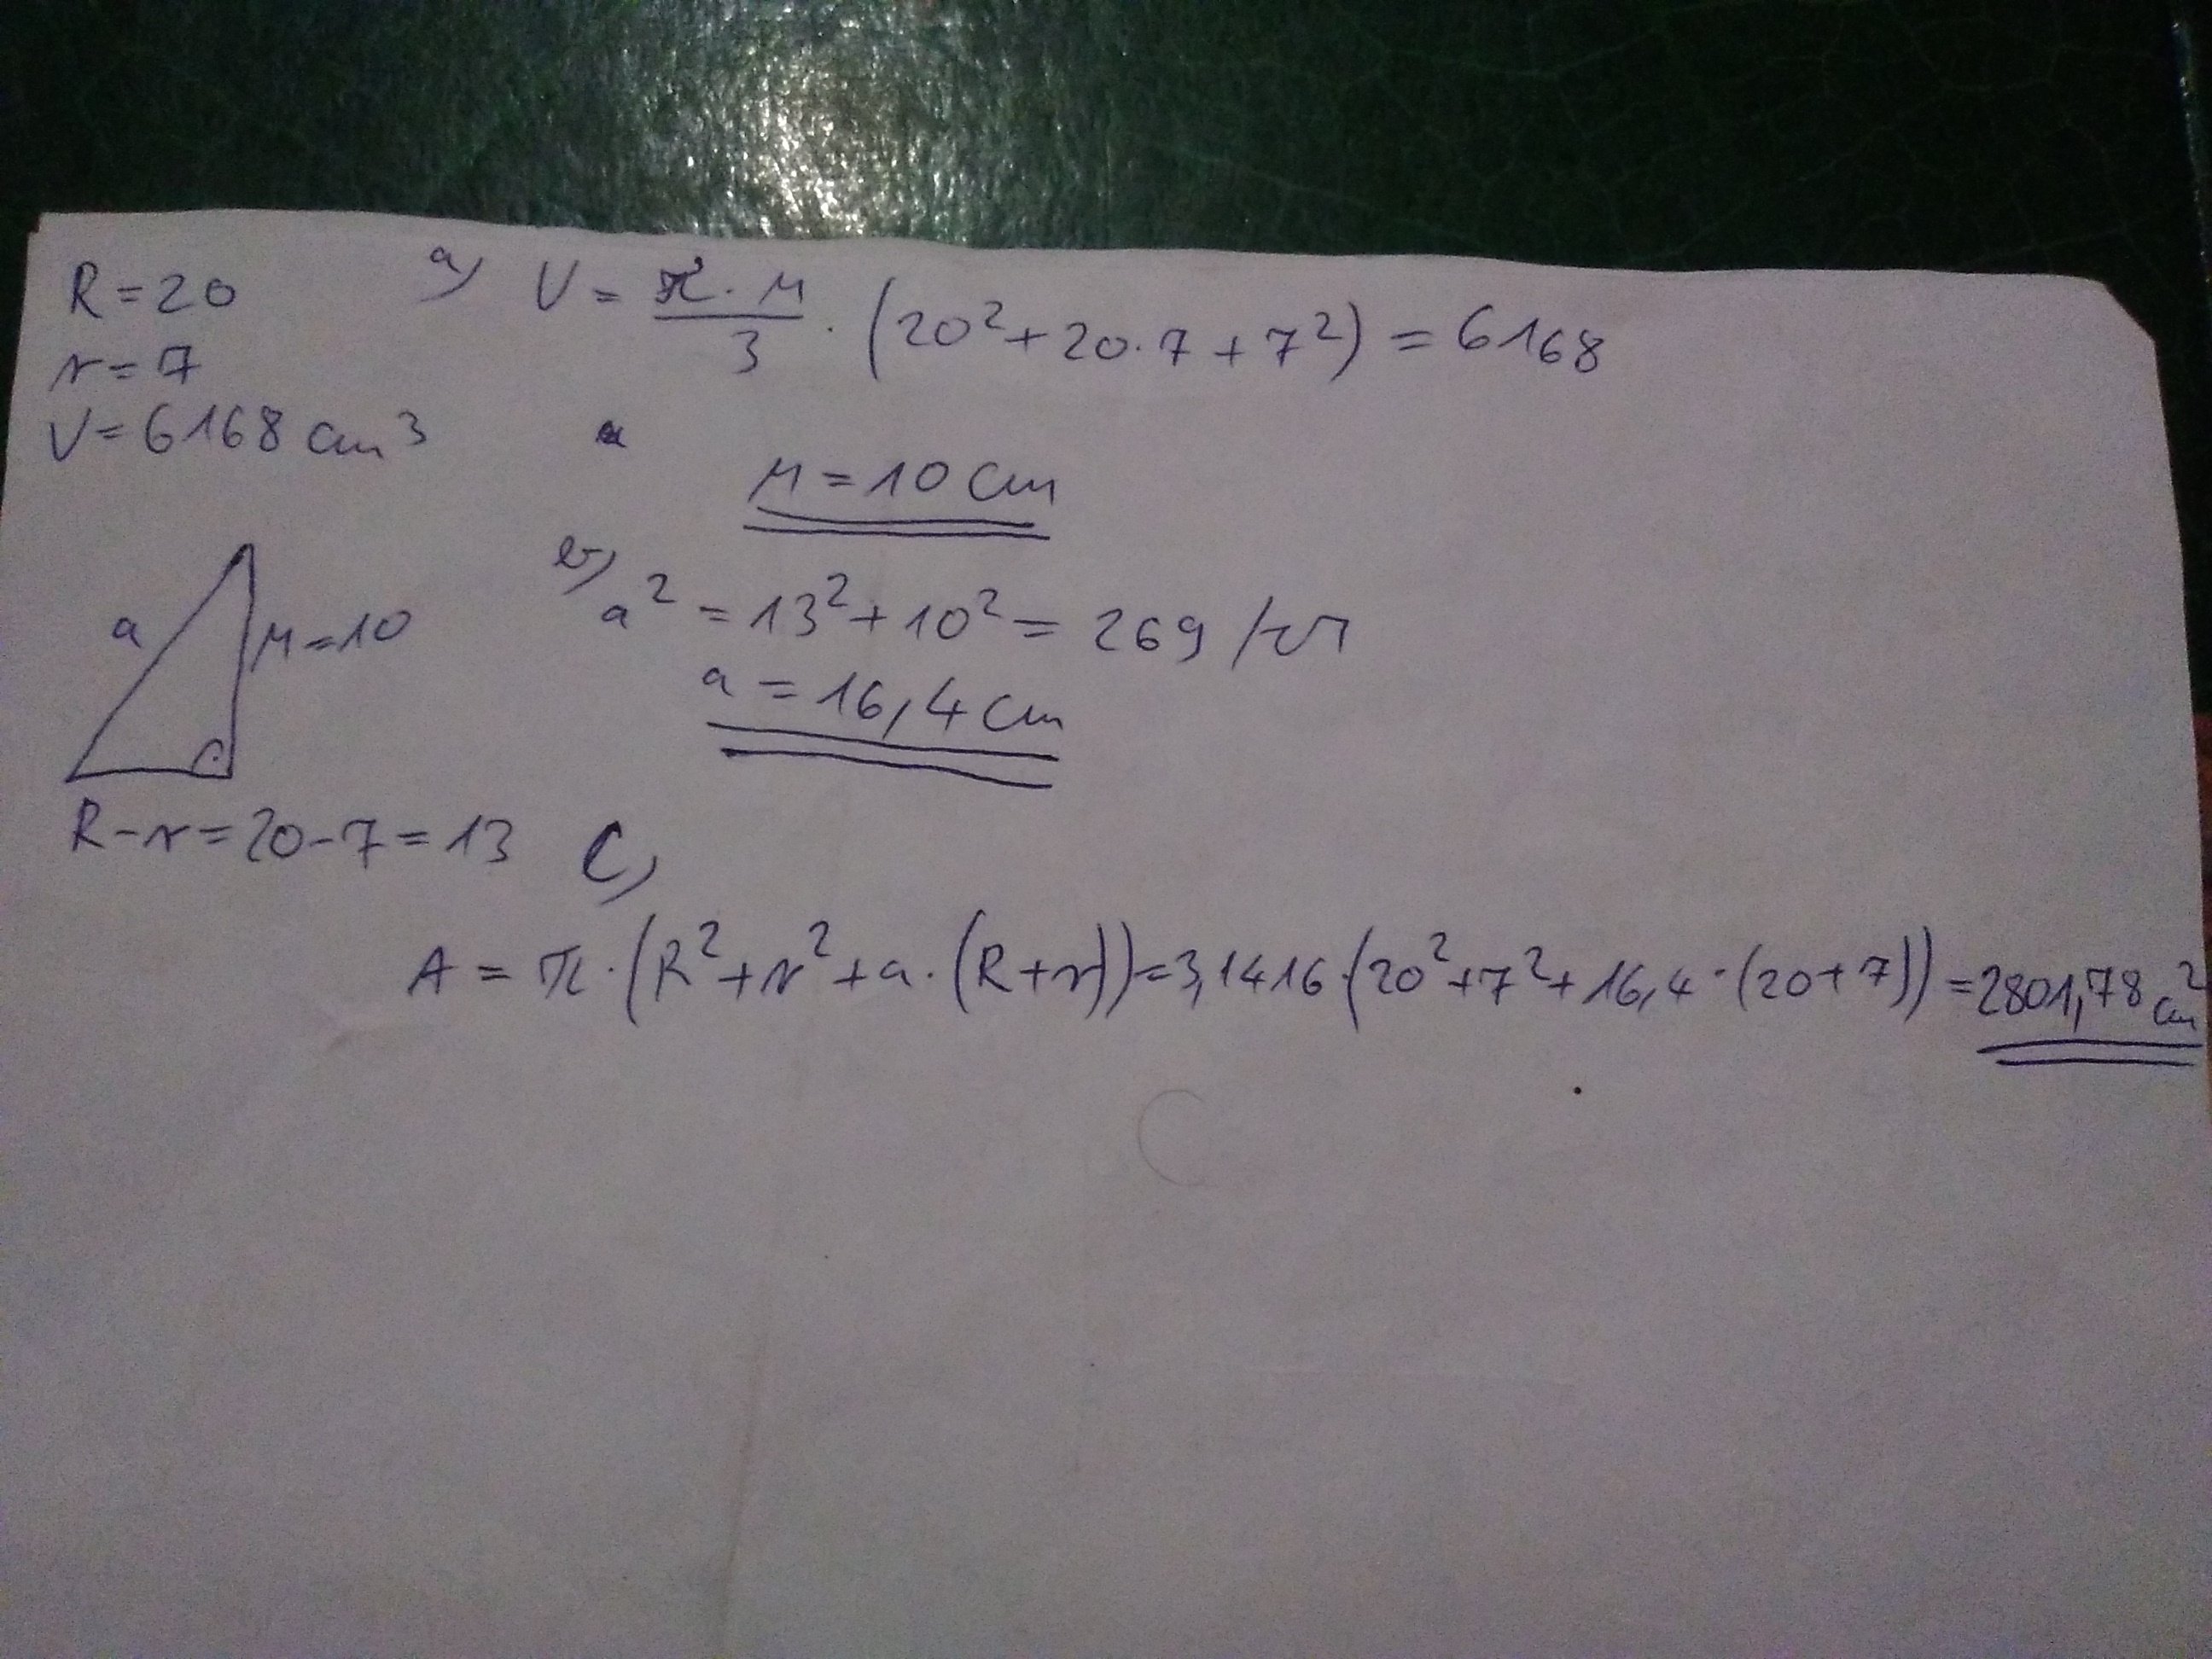 R = 20
r = 7
V = 6168 cm3
a) V = π · M / 3 · (20² + 20 · 7 + 7²) = 6168
M = 10 cm
a
M = 10
R - r = 20 - 7 = 13
b) a² = 13² + 10² = 269 /√
a = 16,4 cm
C)
A = π · (R² + r² + a · (R + r)) = 3,1416 · (20² + 7² + 16,4 · (20 + 7)) = 2801,78 cm²